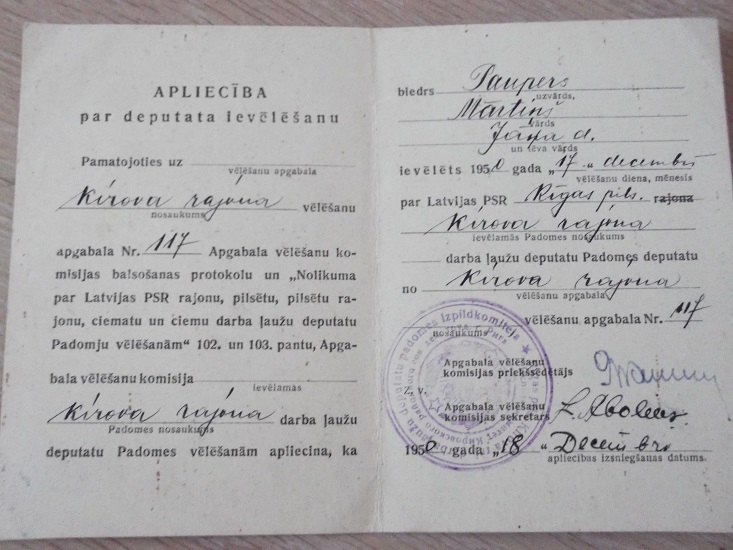 APLIECĪBA
par deputata ievēlēšanu
Pamatojoties uz
vēlēšanu apgabala
Kirova rajona vēlēšanu
nosaukums
apgabala Nr. 117 Apgabala vēlēšanu ko-
misijas balsošanas protokolu un „Nolikuma
par Latvijas PSR rajonu, pilsētu, pilsētu ra-
jonu, ciematu un ciemu darba ļaužu deputatu
Padomju vēlēšanām" 102. un 103. pantu, Apga-
bala vēlēšanu komisija
ievēlamās
Kirova rajona darba ļaužu
Padomes nosaukums
deputatu Padomes vēlēšanām apliecina, ka
biedrs Paupers
uzvārds,
Mārtiņš
vārds
Jāņa d.
un tēva vārds
ievēlēts 1950 gada „17„ decembrī
vēlēšanu diena, mēnesis
par Latvijas PSR Rīgas pils. rajona
Kirova rajona
ievēlamās Padomes nosaukums
darba ļaužu deputatu Padomes deputatu
no Kirova rajona
vēlēšanu apgabala
vēlēšanu apgabala Nr. 117
nosaukums
Apgabala vēlēšanu
komisijas priekšsēdētājs
Z. v.
Apgabala vēlēšanu
komisijas sekretars
1950 gada „18" Decembrī
apliecības izsniegšanas datums.